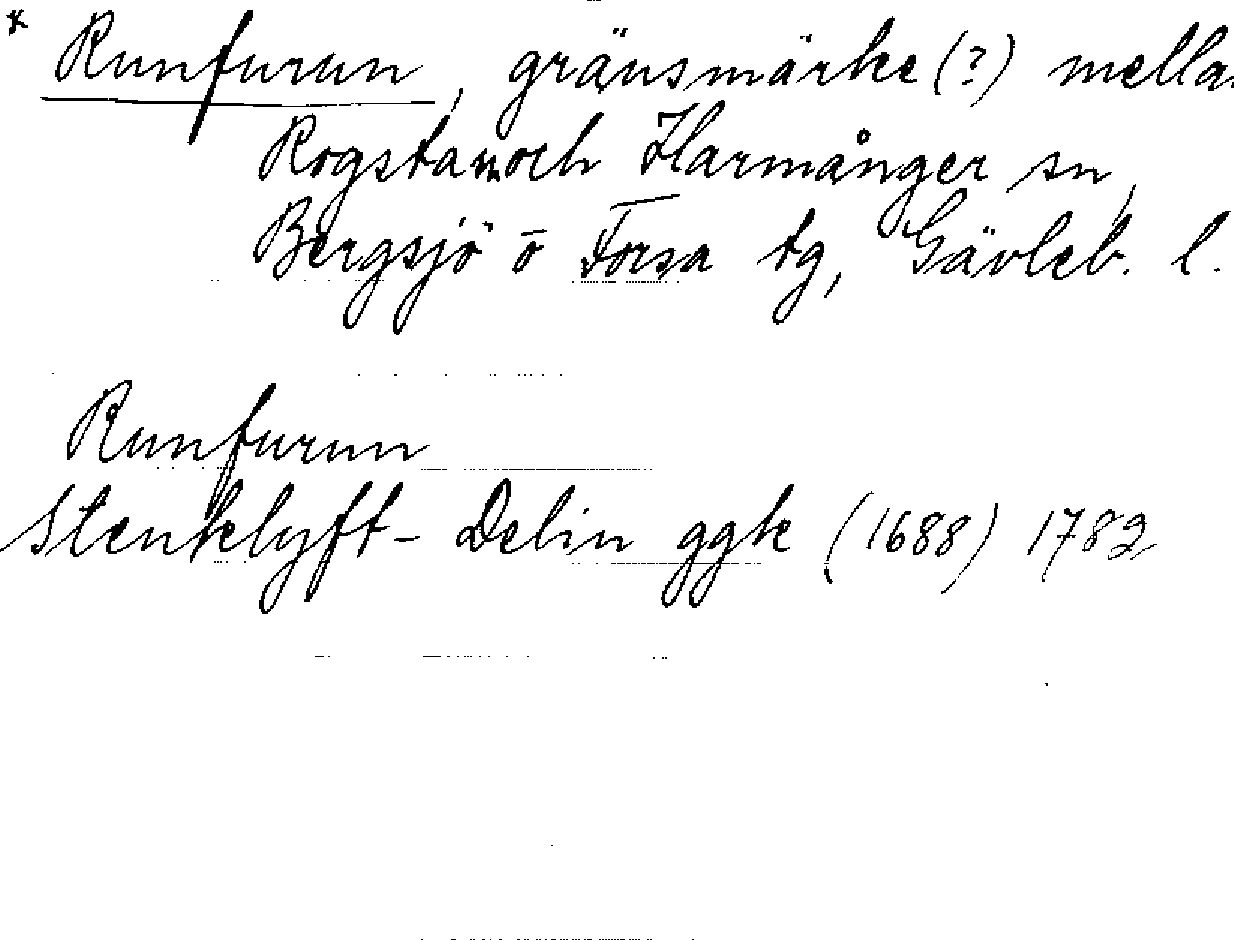 * Runfurun, gränsmärke (?) mella
Rogsta sn och Harmånger sn,
Bergsjö o Forsa tg, Gävleb. l.
Runfurun
Stenklyft- Delin ggk (1688) 1782